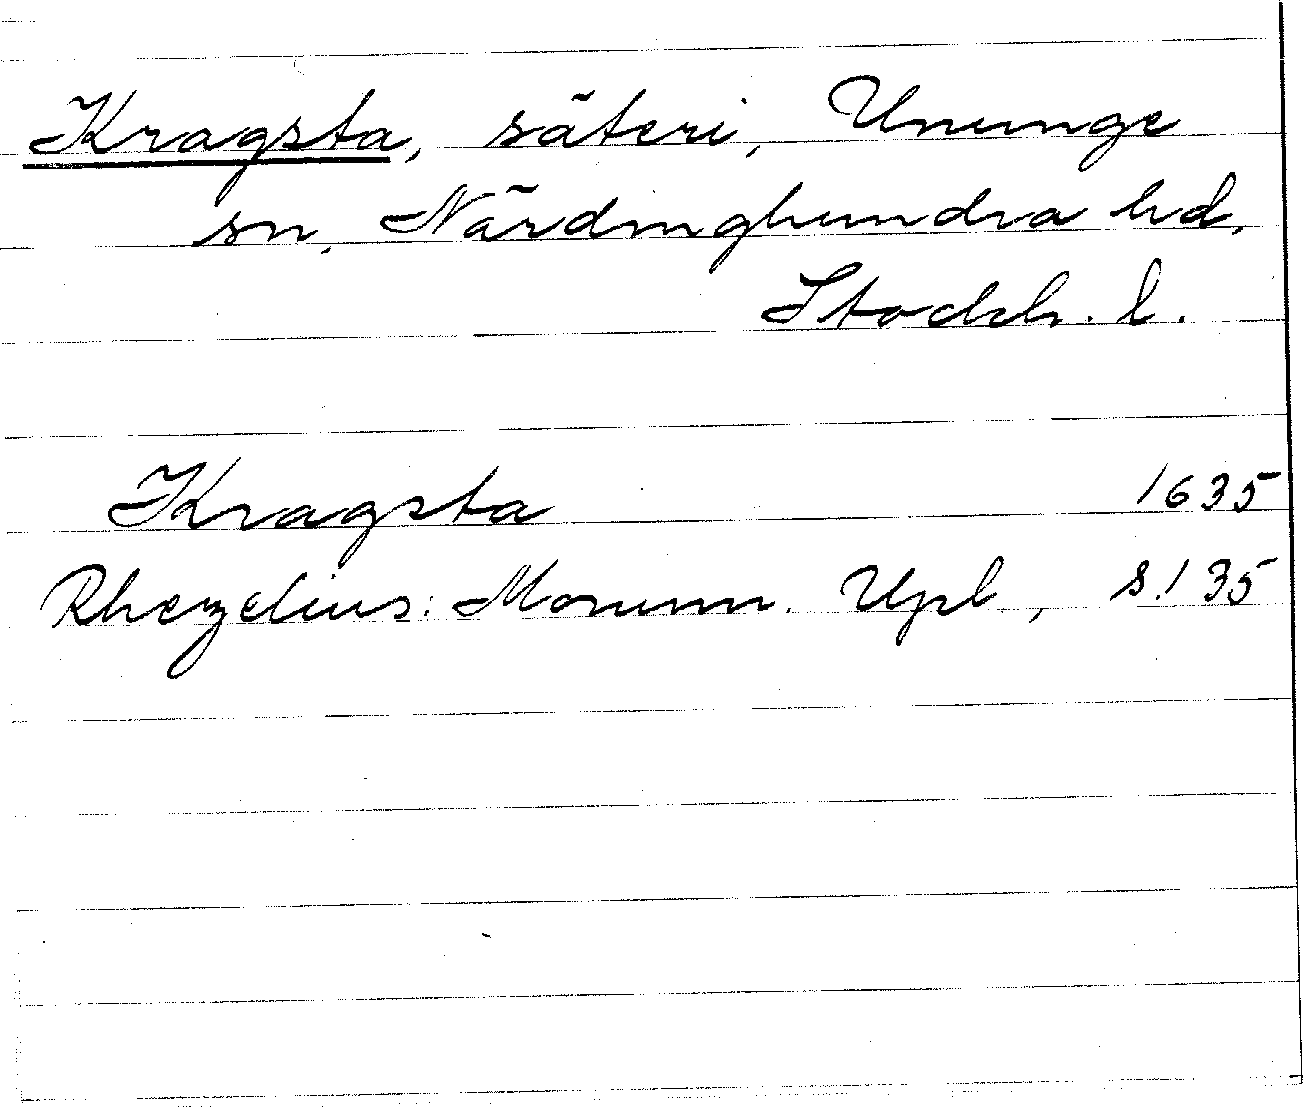 Kragsta, säteri, Ununge
sn, Närdinghundra hd,
Stockh. l.
Kragsta 1635
Rhezelius: Monum. Upl, s. 135